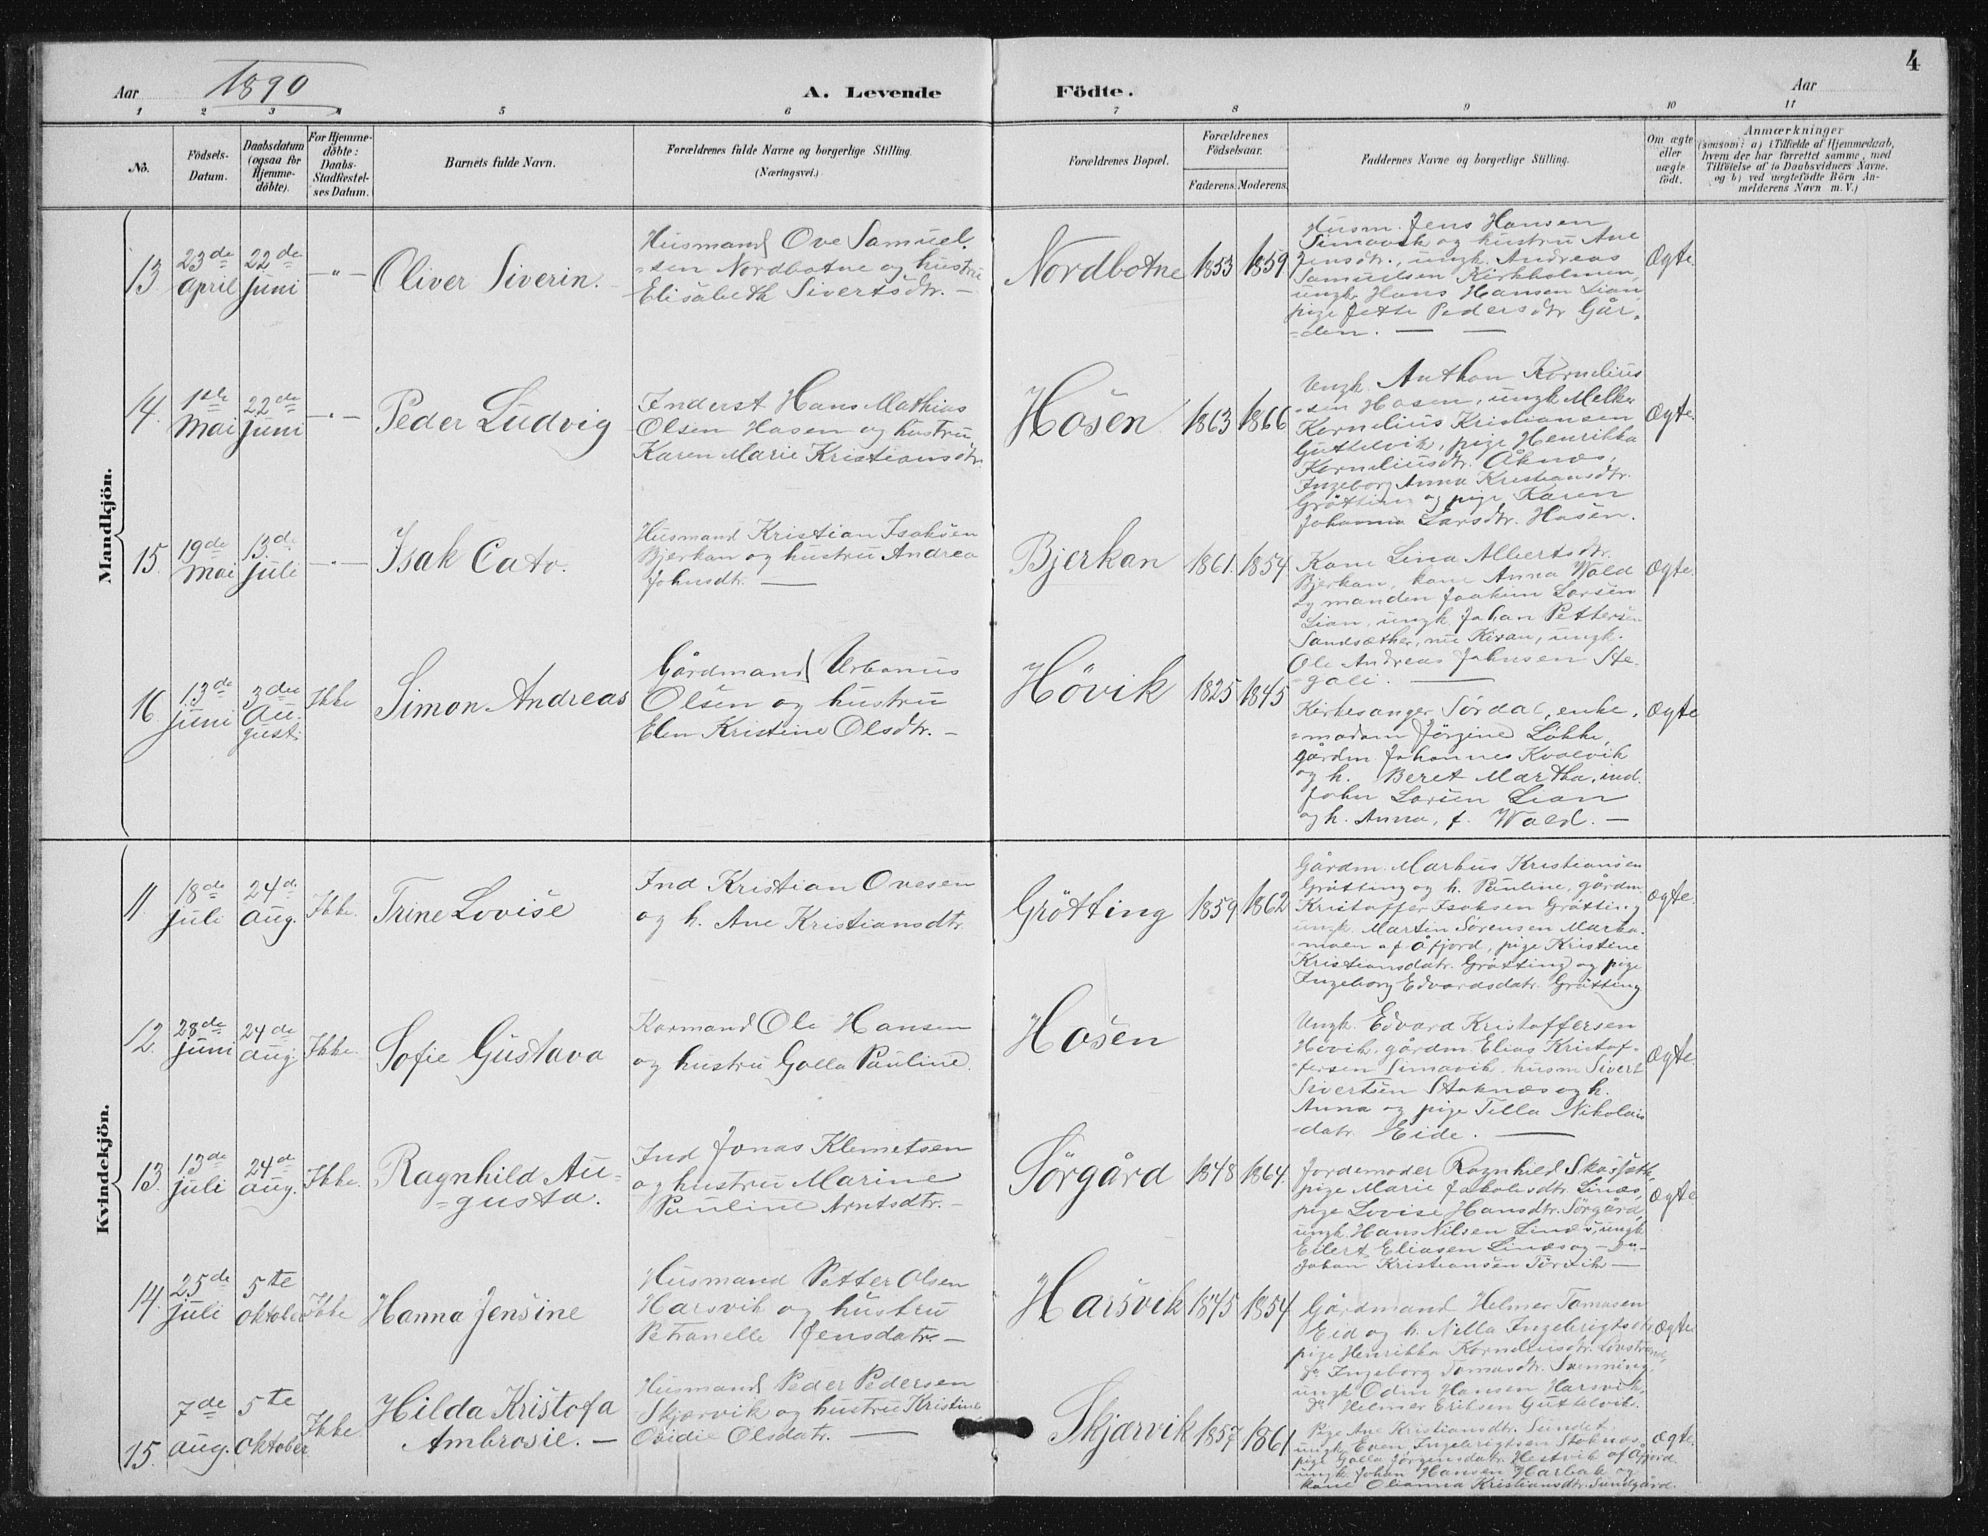 4
Aar 1890 A. Levende Födte. Aar
1 2 3 4 5 6 7 8 9 10 11
No.
Födsels-
Datum.
Daabsdatum
(ogsaa for
Hjemme-
döbte).
For Hjemme-
döbte:
Daabs-
Stadfæstel-
ses Datum.
Barnets fulde Navn.
Forældrenes fulde Navne og borgerlige Stilling.
(Næringsvei.)
Forældrenes Bopæl.
Forældrenes
Födselsaar.
Faderens. Moderens.
Faddernes Navne og borgerlige Stilling.
Om ægte
eller
uægte
födt.
Anmærkninger
(saasom: a) i Tilfælde af Hjemmedaab,
hvem der har forrettet samme, med
Tilföielse af to Daabsvidners Navne,
og b) ved uægtefödte Börn An-
melderens Navn m. V.)
Mandkjön.
13.
23de
April
22de
Juni
— " —
Oliver Siverin.
Husmand Ove Samuel-
sen Nordbotne og hustru
Elisabeth Sivertsdtr. —
Nordbotne
1853
1859
Husm. Jens Hansen
Simavik og hustru Ane
Jensdtr., ungk. Andreas
Samuelsen Kirkholmen,
ungk. Hans Hansen Lian,
pige Jette Pedersdtr Går-
den. — —
Ægte.
14.
1ste
Mai
22de
Juni
— " —
Peder Ludvig
Inderst Hans Mathias
Olsen Hasen og hustru
Karen Marie Kristiansdtr.
Hosen
1863
1866
Ungk. Anthon Kornelius
sen Hosen, ungk Melker
Kornelius Kristiansen
Guttelvik, pige Henrikka
Korneliusdtr. Åknes,
Ingeborg Anna Kristiansdtr.
Gröttin og pige Karen
Johanna Larsdtr. Hosen.
Ægte.
15.
19de
Mai
13de
Juli
— " —
Isak Cato.
Husmand Kristian Isaksen
Bjerkan og hustru Andrea
Johnsdtr. —
Bjerkan
1861.
1854
Kone Lina Albertsdtr.
Bjerkan, kone Anna Wold
og manden Joakim Larsen
Lian, ungk. Johan Pettersen
Sandsæther, nu Kiran, ungk.
Ole Andreas Johnsen Ste-
gali. —
Ægte.
16.
13de
Juni
3die
Au-
gust.
Ikke
Simon Andreas
Gårdmand Urbanus
Olsen og hustru
Elen Kristine Olsdtr. —
Hövik
1825
1845
Kirkesanger Sördal, enke-
madam Jörgine Lökke,
gårdm Johannes Kvalvik
og h. Beret Martha, ind.
John Larsen Lian
og h. Anna, f. Wold. —
Ægte
Kvindekjön.
11.
18de
Juli
24de
Aug.
Ikke.
Trine Lovise
Ind Kristian Ovesen
og h. Ane Kristiansdtr.
Grötting
1859
1862
Gårdm. Markus Kristiansen
Grötting og h. Pauline, gårdm
Kristoffer Isaksen Grötting
ungk. Martin Sörensen Marka-
moen af Åfjord, pige Kristine
Kristiansdatr. Grötting og pige
Ingeborg Edvardsdatr. Grötting
Ægte.
12.
28de
Juni
24de
Aug
Ikke.
Sofie Gustava
Karmand Ole Hansen
og hustru Golla Pauline.
Hosen
Ungk. Edvard Kristoffersen
Hövik, gårdm. Elias Kristof-
fersen Simavik, husm Sivert
Sivertsen Stoknes og h.
Anna og pige Tella Nikolais
datr. Eide. —
Ægte.
13.
13de
Juli
24de
Aug.
Ikke.
Ragnhild Au-
gusta.
Ind Jonas Klemetsen
og hustru Marine
Pauline Arntsdtr. —
Sörgård
1848
1864.
Jordemoder Ragnhild
pige Marie Jakobsdtr. Lines,
pige Lovise Hansdtr. Sörgård,
ungk. Hans Nilsen Lines, ungk
Eilert Eliasen Lines og — Do. —
Johan Kristiansen —
Ægte.
14.
25de
Juli
5te
Oktober
Ikke
Hanna Jensine
Husmand Petter Olsen
Harsvik og hustru
Petranelle Jensdatr. —
Harsvik
1845
1854
Gårdmand Helmer Tomasen
Eid og h. Nella Ingebrigtsdtr
pige Henrikka Korneliusdtr. Lovstrand,
do Ingeborg Tomasdtr. Svenning
ungk Odin Hansen Harsvik,
do Helmer Eriksen Guttelvik.
Ægte.
15.
7de
Aug.
5te
Oktober
Ikke
Hilda Kristofa
Ambrosie. —
Husmand Peder Pedersen
Skjærvik og hustru Kristine
Ovidie Olsdatr. —
Skjærvik
1857
1861
Pige Ane Kristiansdtr. Sundet.
ungk. Even Ingebrigtsen Stoknes,
pige Golla Jörgensdatr. Hestvik af Åfjord.
ungk. Johan Hansen Harbak og
kone Olianna Kristiansdtr. Sundgård.
Ægte.